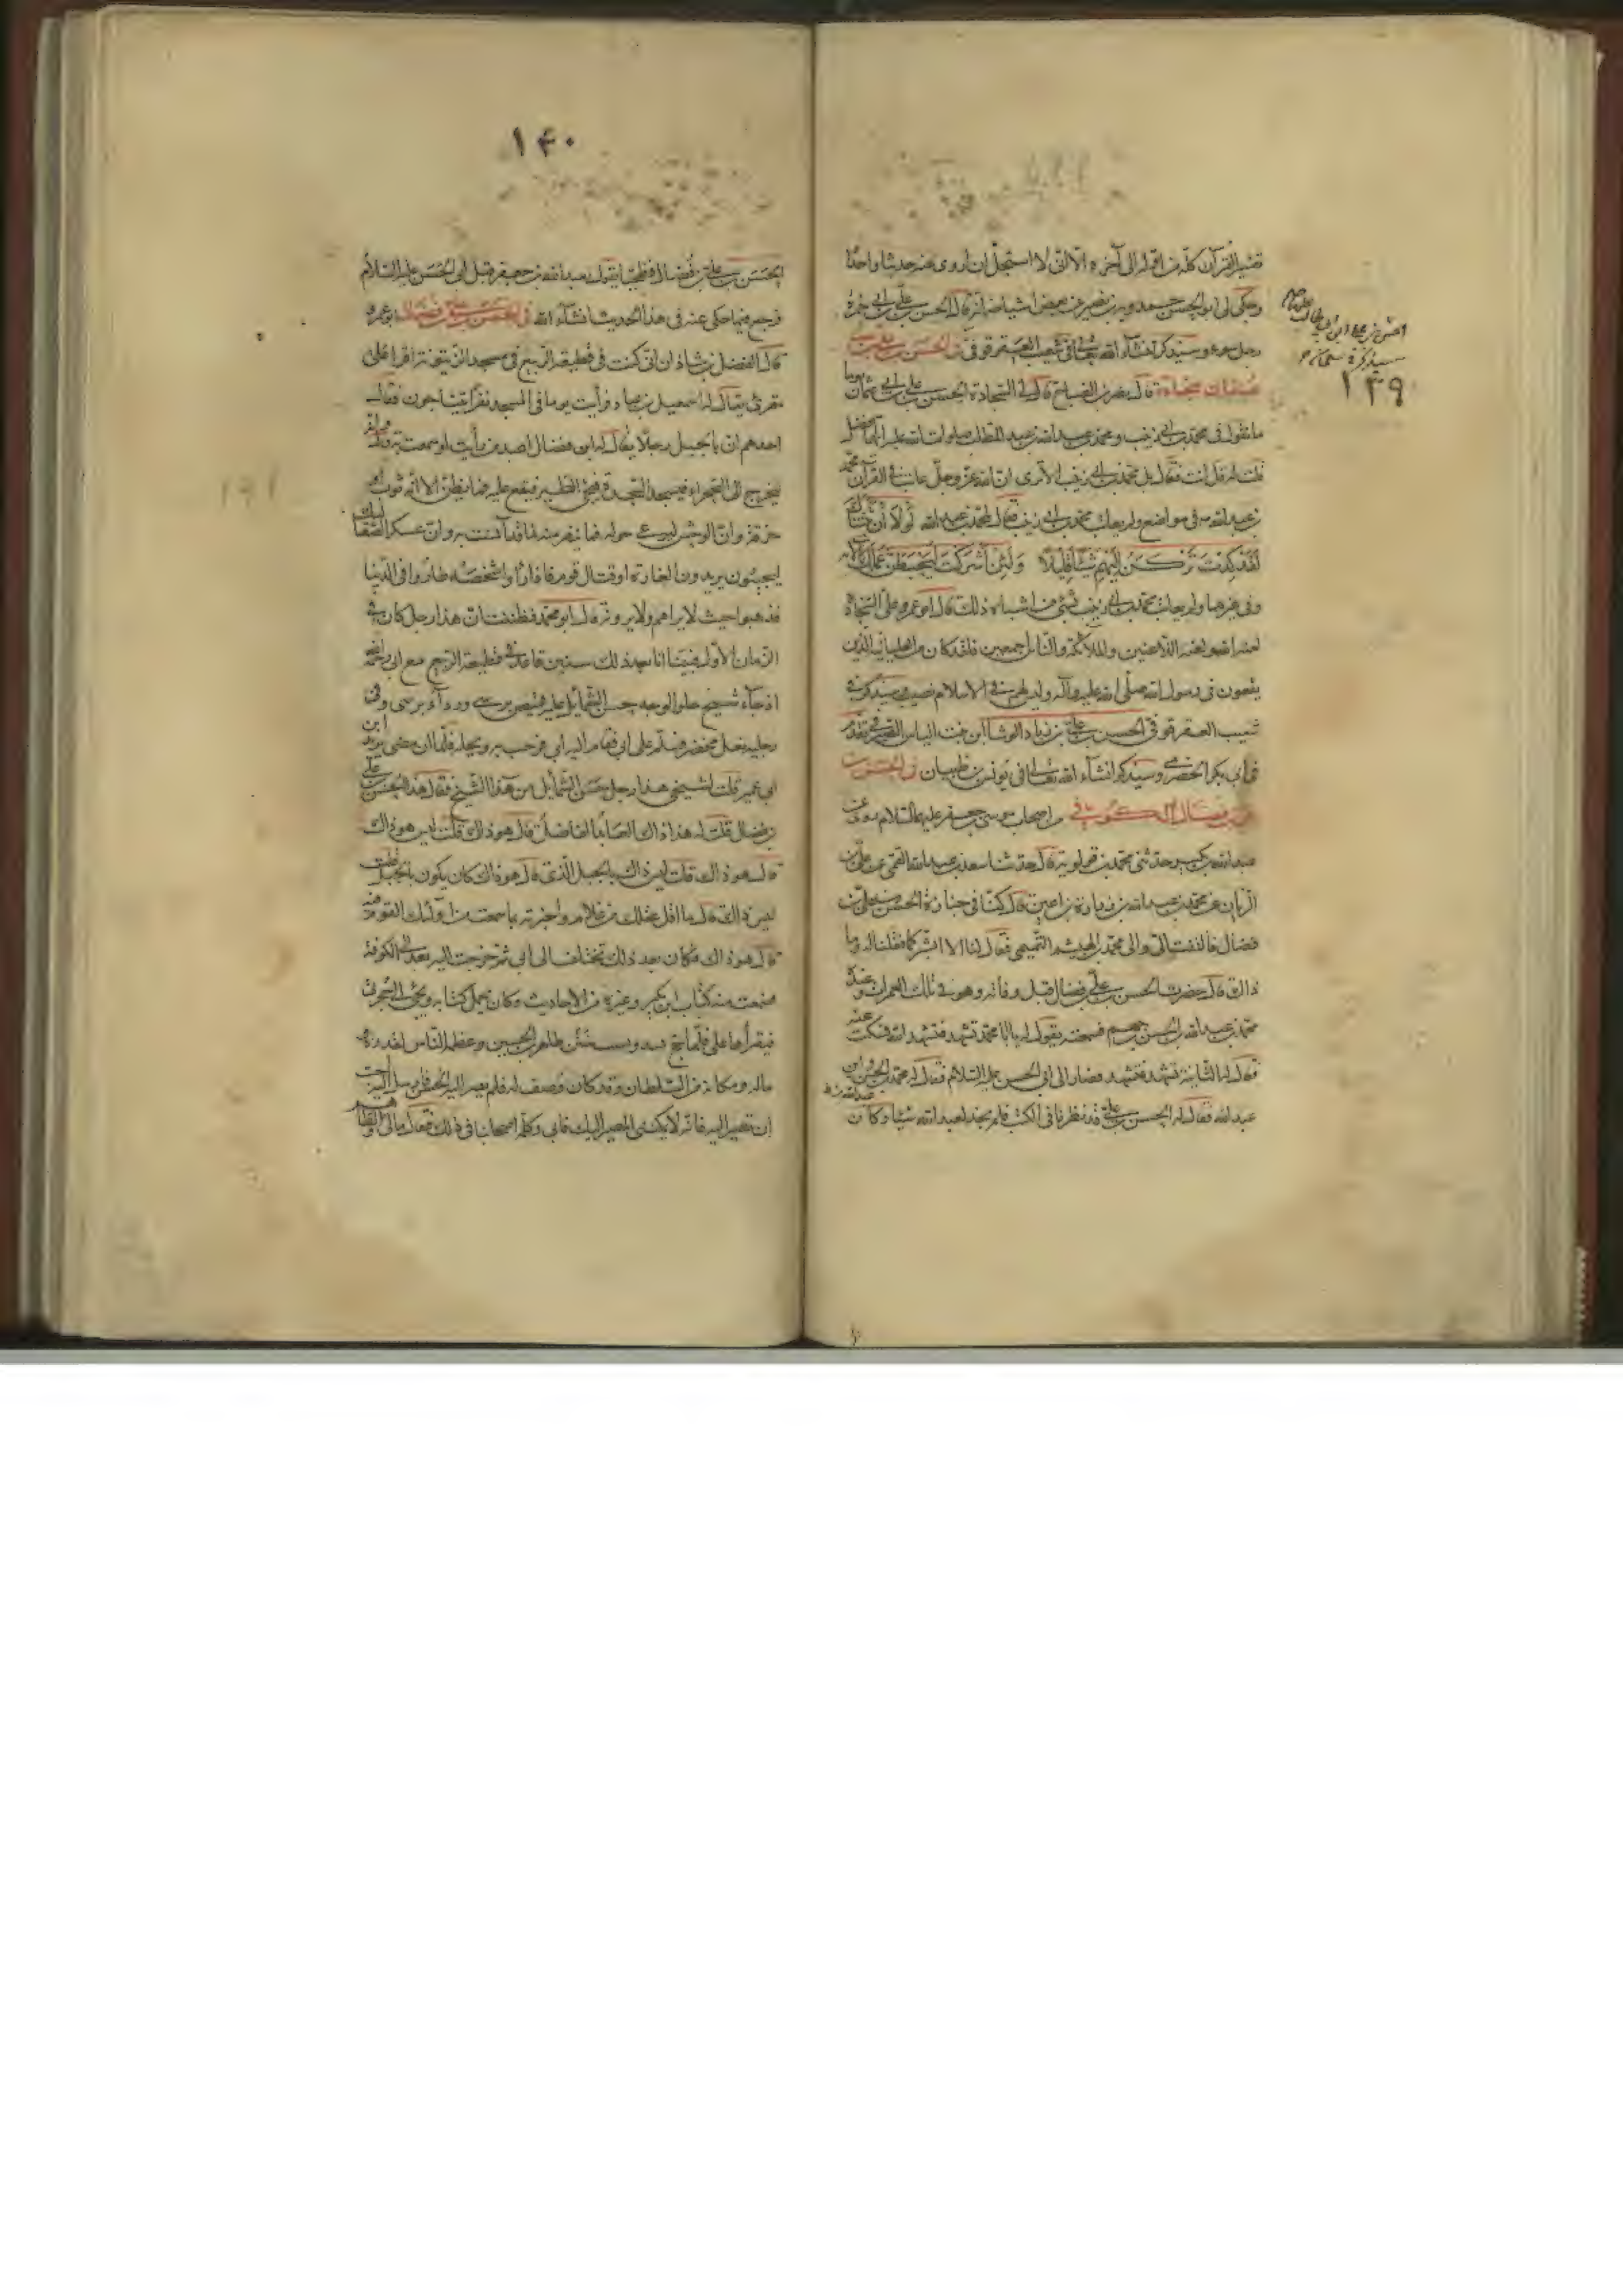 تفسير القرآن كله من اوله الى آخره الا انى لا استحل ان اروى عنه حديثا واحدا
وحكى لى ابو الحسن حمدويه بن نصير عن بعض اشياخه انه قال الحسن بن على بن ابى حمزة
رجل سوء وسيذكر انشاء الله تعالى فى شعيب العقرقوفى فى الحسن بن على بن
عثمان سجادة قال نصر بن الصباح قال لى السجادة الحسن بن على بن ابى عثمان يوما
ما تقول فى محمد بن ابى زينب ومحمد بن عبد الله بن عبد المطلب صلوات الله عليه ايهما افضل
قلت له قل انت فقال بل محمد بن ابى زينب الا ترى ان الله عز وجل عاتب فى القرآن محمد
بن عبد الله فى مواضع ولم يعاتب محمد بن ابى زينب فقال لمحمد بن عبد الله لولا ان ثبتناك
لقد كدت تركن اليهم شيئا قليلا ولئن اشركت ليحبطن عملك الآية
وفى غيرهما ولم يعاتب محمد بن ابى زينب بشئ من اشباه ذلك قال ابو عمرو على السجادة
لعنة الله ولعنة اللاعنين والملائكة والناس اجمعين فلقد كان من العليائية الذين
يقعون فى رسول الله صلى الله عليه وآله وليس لهم فى الاسلام نصيب سيذكر فى
شعيب العقرقوفى الحسن بن على بن زياد الوشا ابن بنت الياس الصيرفى تقدم
فى ابى بكر الحضرمى وسيذكر انشاء الله تعالى فى يونس بن ظبيان فى الحسن بن
على بن فضال الكوفى من اصحاب موسى بن جعفر عليهما السلام
عبد الله بن بكير حدثنى محمد بن قولويه قال حدثنا سعد بن عبد الله القمى عن على بن
الريان عن محمد بن عبد الله بن زرارة بن اعين قال كنا فى جنازة الحسن بن على بن
فضال فالتفت الى والى محمد بن الهيثم التميمى فقال لنا الا ابشركما فقلنا له وما
ذاك قال حضرت الحسن بن على بن فضال قبل وفاته وهو فى تلك الغمرات وعنده
محمد بن عبد الله بن الحسن بن جهم فسمعته يقول له يا ابا محمد تشهد فتشهد الله فسكت عنه
فقال له الثانية تشهد فتشهد فصار الى ابى الحسن عليه السلام فقال له محمد بن الحسن واين
عبد الله
عبد الله فقال له الحسن بن على قد نظرنا فى الكتب فلم نجد لعبد الله شيئا وكان
سيذكر فى
١٣٩
١٤٠
الحسن بن على بن فضال فطحيا يقول بعبد الله بن جعفر قبل ابى الحسن عليه السلام
فرجع فيما حكى عنه فى هذا الحديث انشاء الله فى الحسن بن على بن فضال ابو عمرو
قال الفضل بن شاذان انى كنت فى قطيعة الربيع فى مسجد الزيتونة اقرا على
مقرئ يقال له اسمعيل بن عباد فرأيت يوما فى المسجد نفرا يتناجون فقال
احدهم ان بالجبل رجلا يقال له ابن فضال اعبد من رأيت او سمعت به قال وانه
ليخرج الى الصحراء فيسجد السجدة فيجئ الطير فيقع عليه فما يظن الا انه ثوب او
خرقة وان الوحش ليرعى حوله فما ينفر منه لما قد آنست به وان عسكر الصعاليك
ليجيئون يريدون الغارة او قتال قوم فاذا رأوا شخصه طاروا فى الدنيا
فذهبوا حيث لا يراهم ولا يرونه قال ابو محمد فظننت ان هذا رجل كان فى
الزمان الاول فبينا انا بعد ذلك بسنين قاعد فى قطيعة الربيع مع ابى رحمه الله
اذ جاء شيخ حلو الوجه حسن الشمايل عليه قميص نرسى ورداء نرسى وفى
رجليه نعل مخصر فسلم على ابى فقام اليه ابى فرحب به وبجله فلما ان مضى يريد ابن
ابى عمير قلت لشيخى هذا رجل حسن الشمايل من هذا الشيخ فقال هذا الحسن بن على
بن فضال قلت له هذا ذاك العابد الفاضل قال هو ذاك قلت ليس هو ذاك
قال هو ذاك قلت اليس ذاك بالجبل الذى قال هو ذاك كان يكون بالجبل قلت
ليس ذاك قال ما اقل عقلك من غلام واخبرته بما سمعت من اولئك القوم فيه
قال هو ذاك فكان بعد ذلك يختلف الى ابى ثم خرجت اليه بعد الى الكوفة
فسمعت منه كتاب ابن بكير وغيره من الاحاديث وكان يحمل كتابه ويجئ الى حجرتى
فيقرأها على فلما حج ختن طاهر بن الحسين وعظمه الناس لقدره
وماله ومكانه من السلطان وقد كان وصف له فلم يصر اليه الحسن فارسل اليه احب
ان تصير الى فانه لا يمكننى المصير اليك فابى وكلمه اصحابنا فى ذلك فقال ما لى ولطاهر